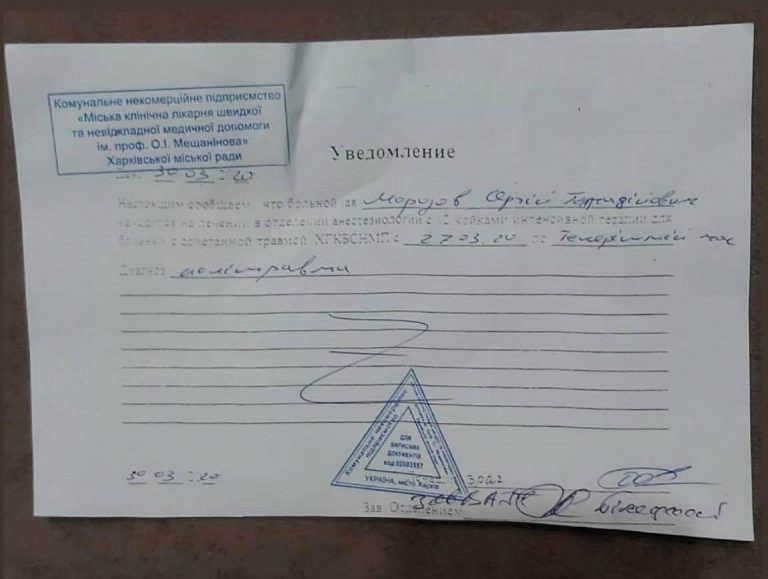 Комунальне некомерційне підприємство
«Міська клінічна лікарня швидкої
та невідкладної медичної допомоги
ім. проф. О.І. Мещанінова»
Харківської міської ради
Уведомление
30 03 20
Настоящим сообщаем, что больной ая Морозов Сергій
находится на лечении в отделении анестезиологии с 12 койками интенсивной терапии для
больных с сочетанной травмой ХГКБСНМП с 27.03.20 по теперішній час
Диагноз політравма
Комунальне некомерційне
підприємство
для
виписних
документів
код 02003557
УКРАЇНА, місто Харків
30 03 20
Врач
Зав Отделением